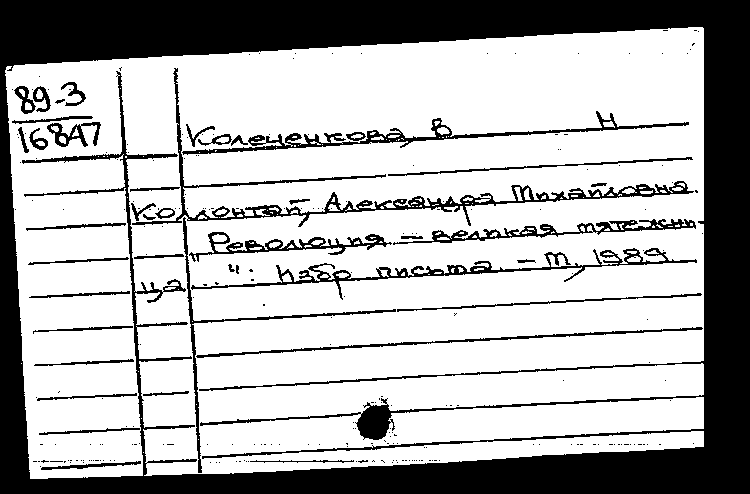 89-3
16847
Колеченкова, В Н
Коллонтай, Александра Михайловна.
"Революция – великая мятежни-
ца..." : Избр письма. – М, 1989.